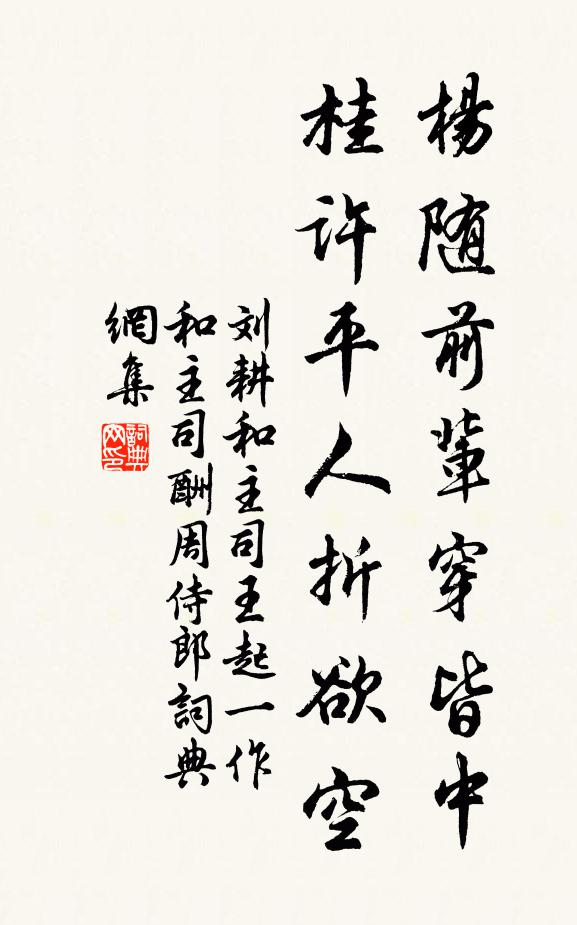 楊随前輩穿皆中
桂許平人折欲空
刘耕和主司王起一作
和主司酬周侍郎詞典
網集
詞典